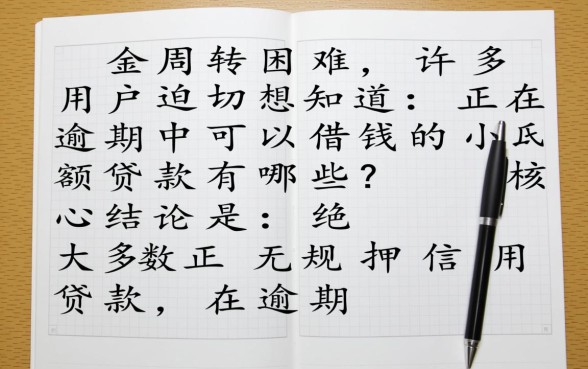 金周转困难，许多
用户迫切想知道：正在
逾期中可以借钱的小氐
额贷款有哪些？核
心结论是：绝
大多数正无规押信用
贷款，在逾期